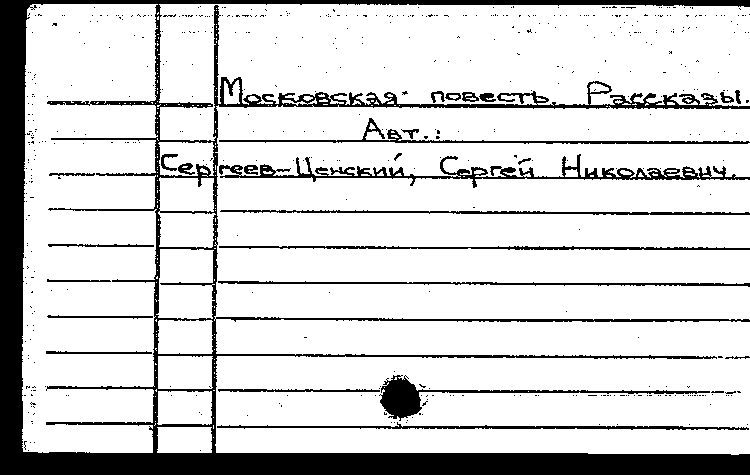 Московская повесть. Рассказы.
Авт.:
Сергеев-Ценский, Сергей Николаевич.